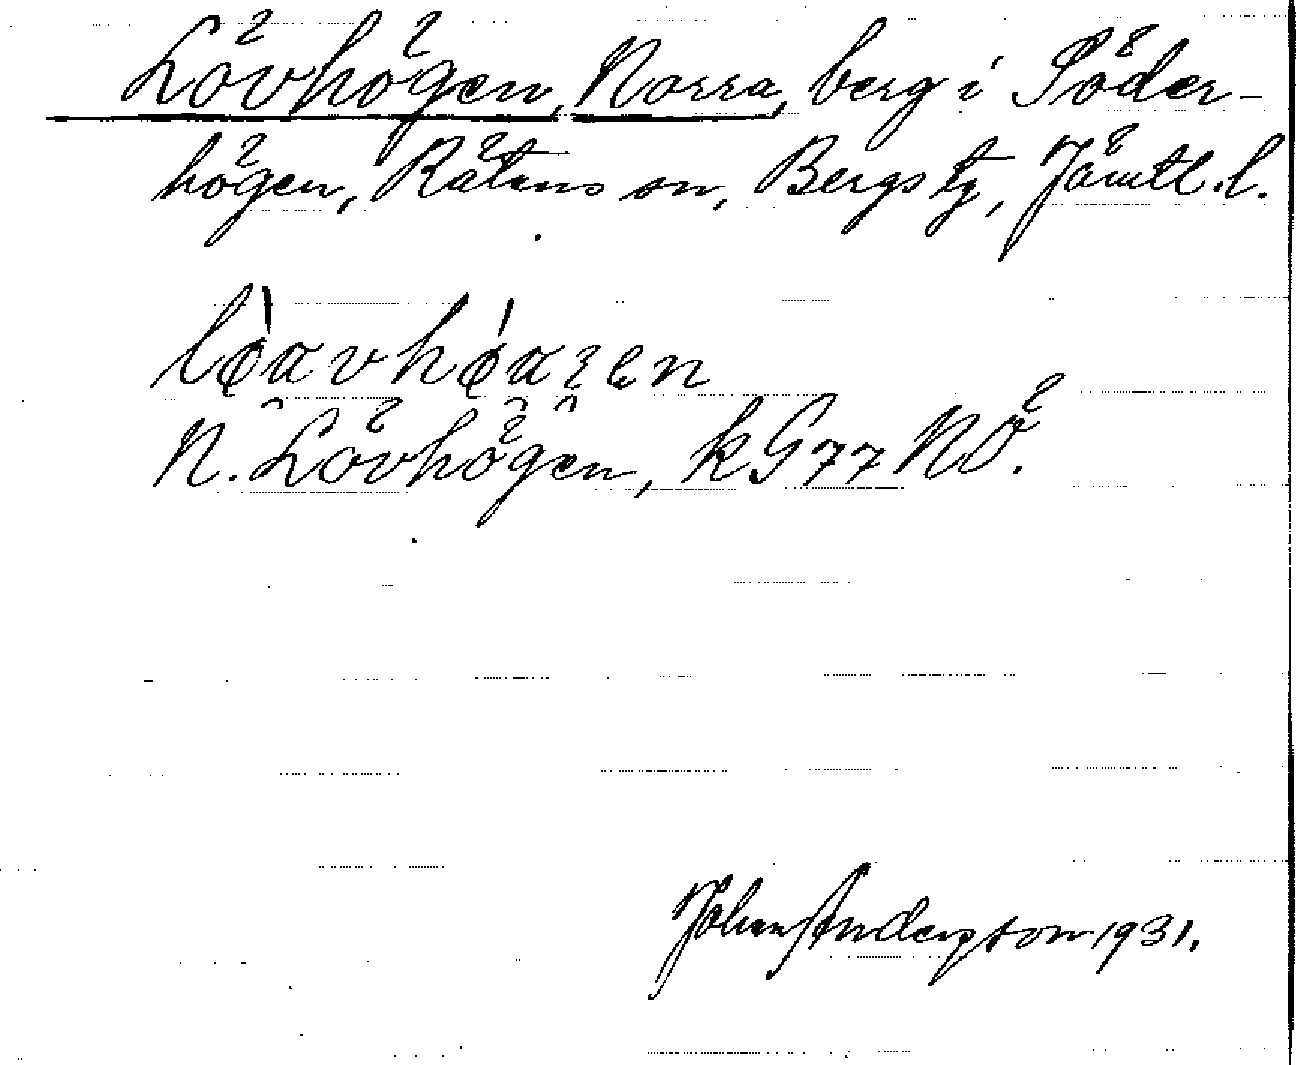 Lövhögen, Norra, berg i Söder-
högen, Rätans sn, Bergs tg, Jämtl. l.
N. Lövhögen, kG77 NÖ.
Johan Anderson 1931.